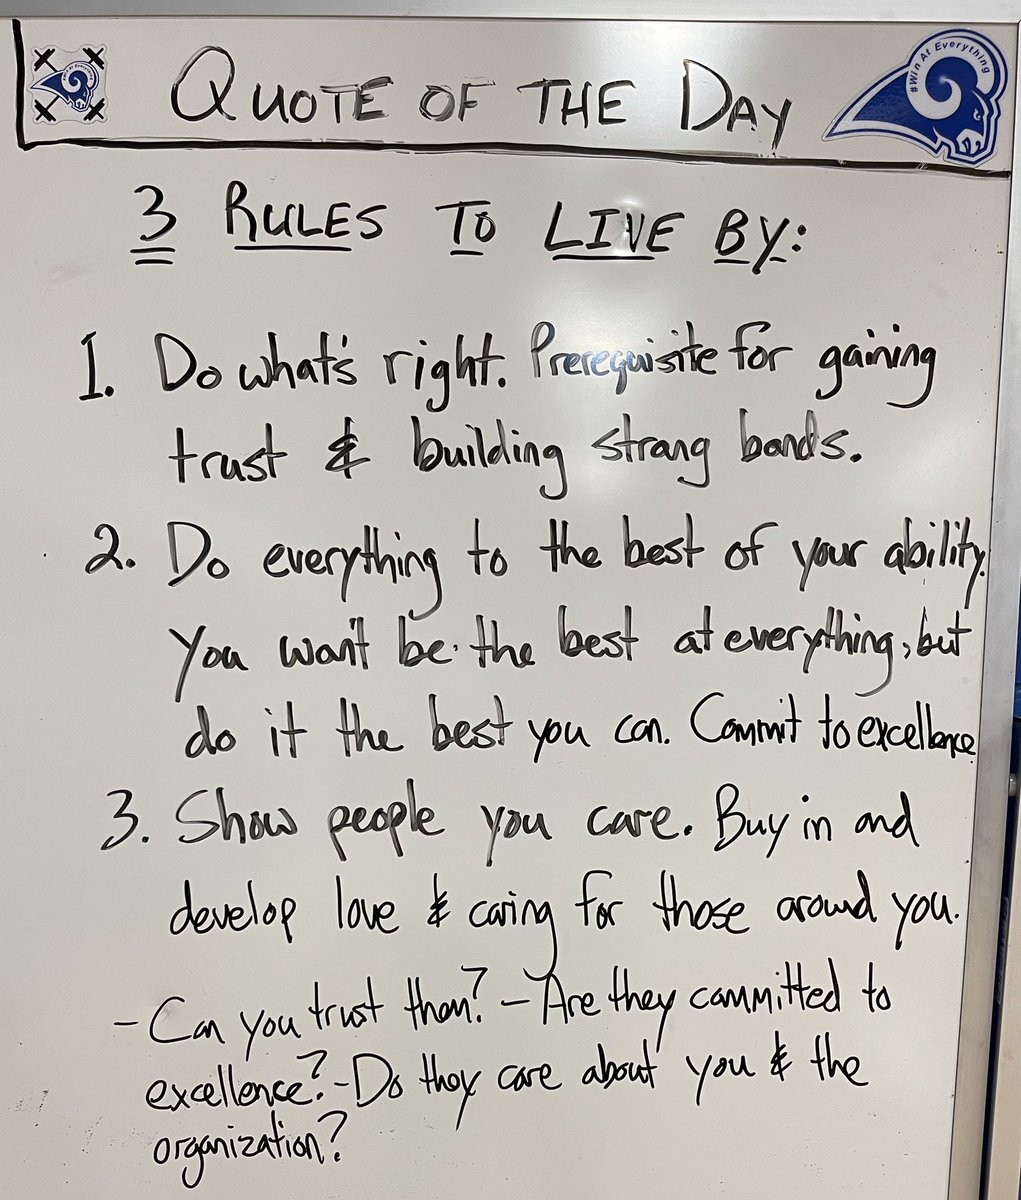 #Win At Everything
QUOTE OF THE DAY
#Win At Everything
3 RULES TO LIVE BY:
1. Do what's right. Prerequisite for gaining
trust & building strong bonds.
2. Do everything to the best of your ability.
You won't be the best at everything, but
do it the best you can. Commit to excellence
3. Show people you care. Buy in and
develop love & caring for those around you.
- Can you trust them? - Are they committed to
excellence? - Do they care about you & the
organization?